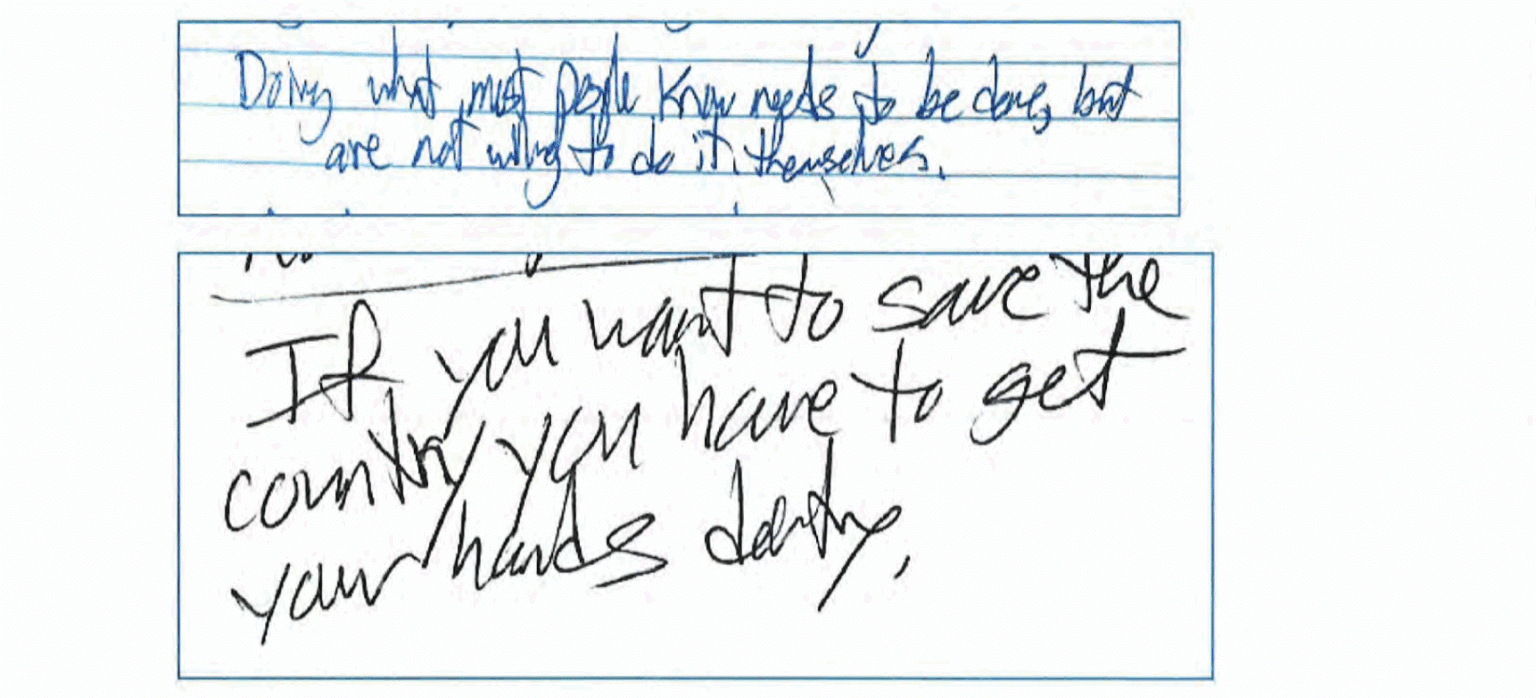 Doing what most people know needs to be done, but
are not willing to do it themselves.
If you want to save the
country you have to get
your hands